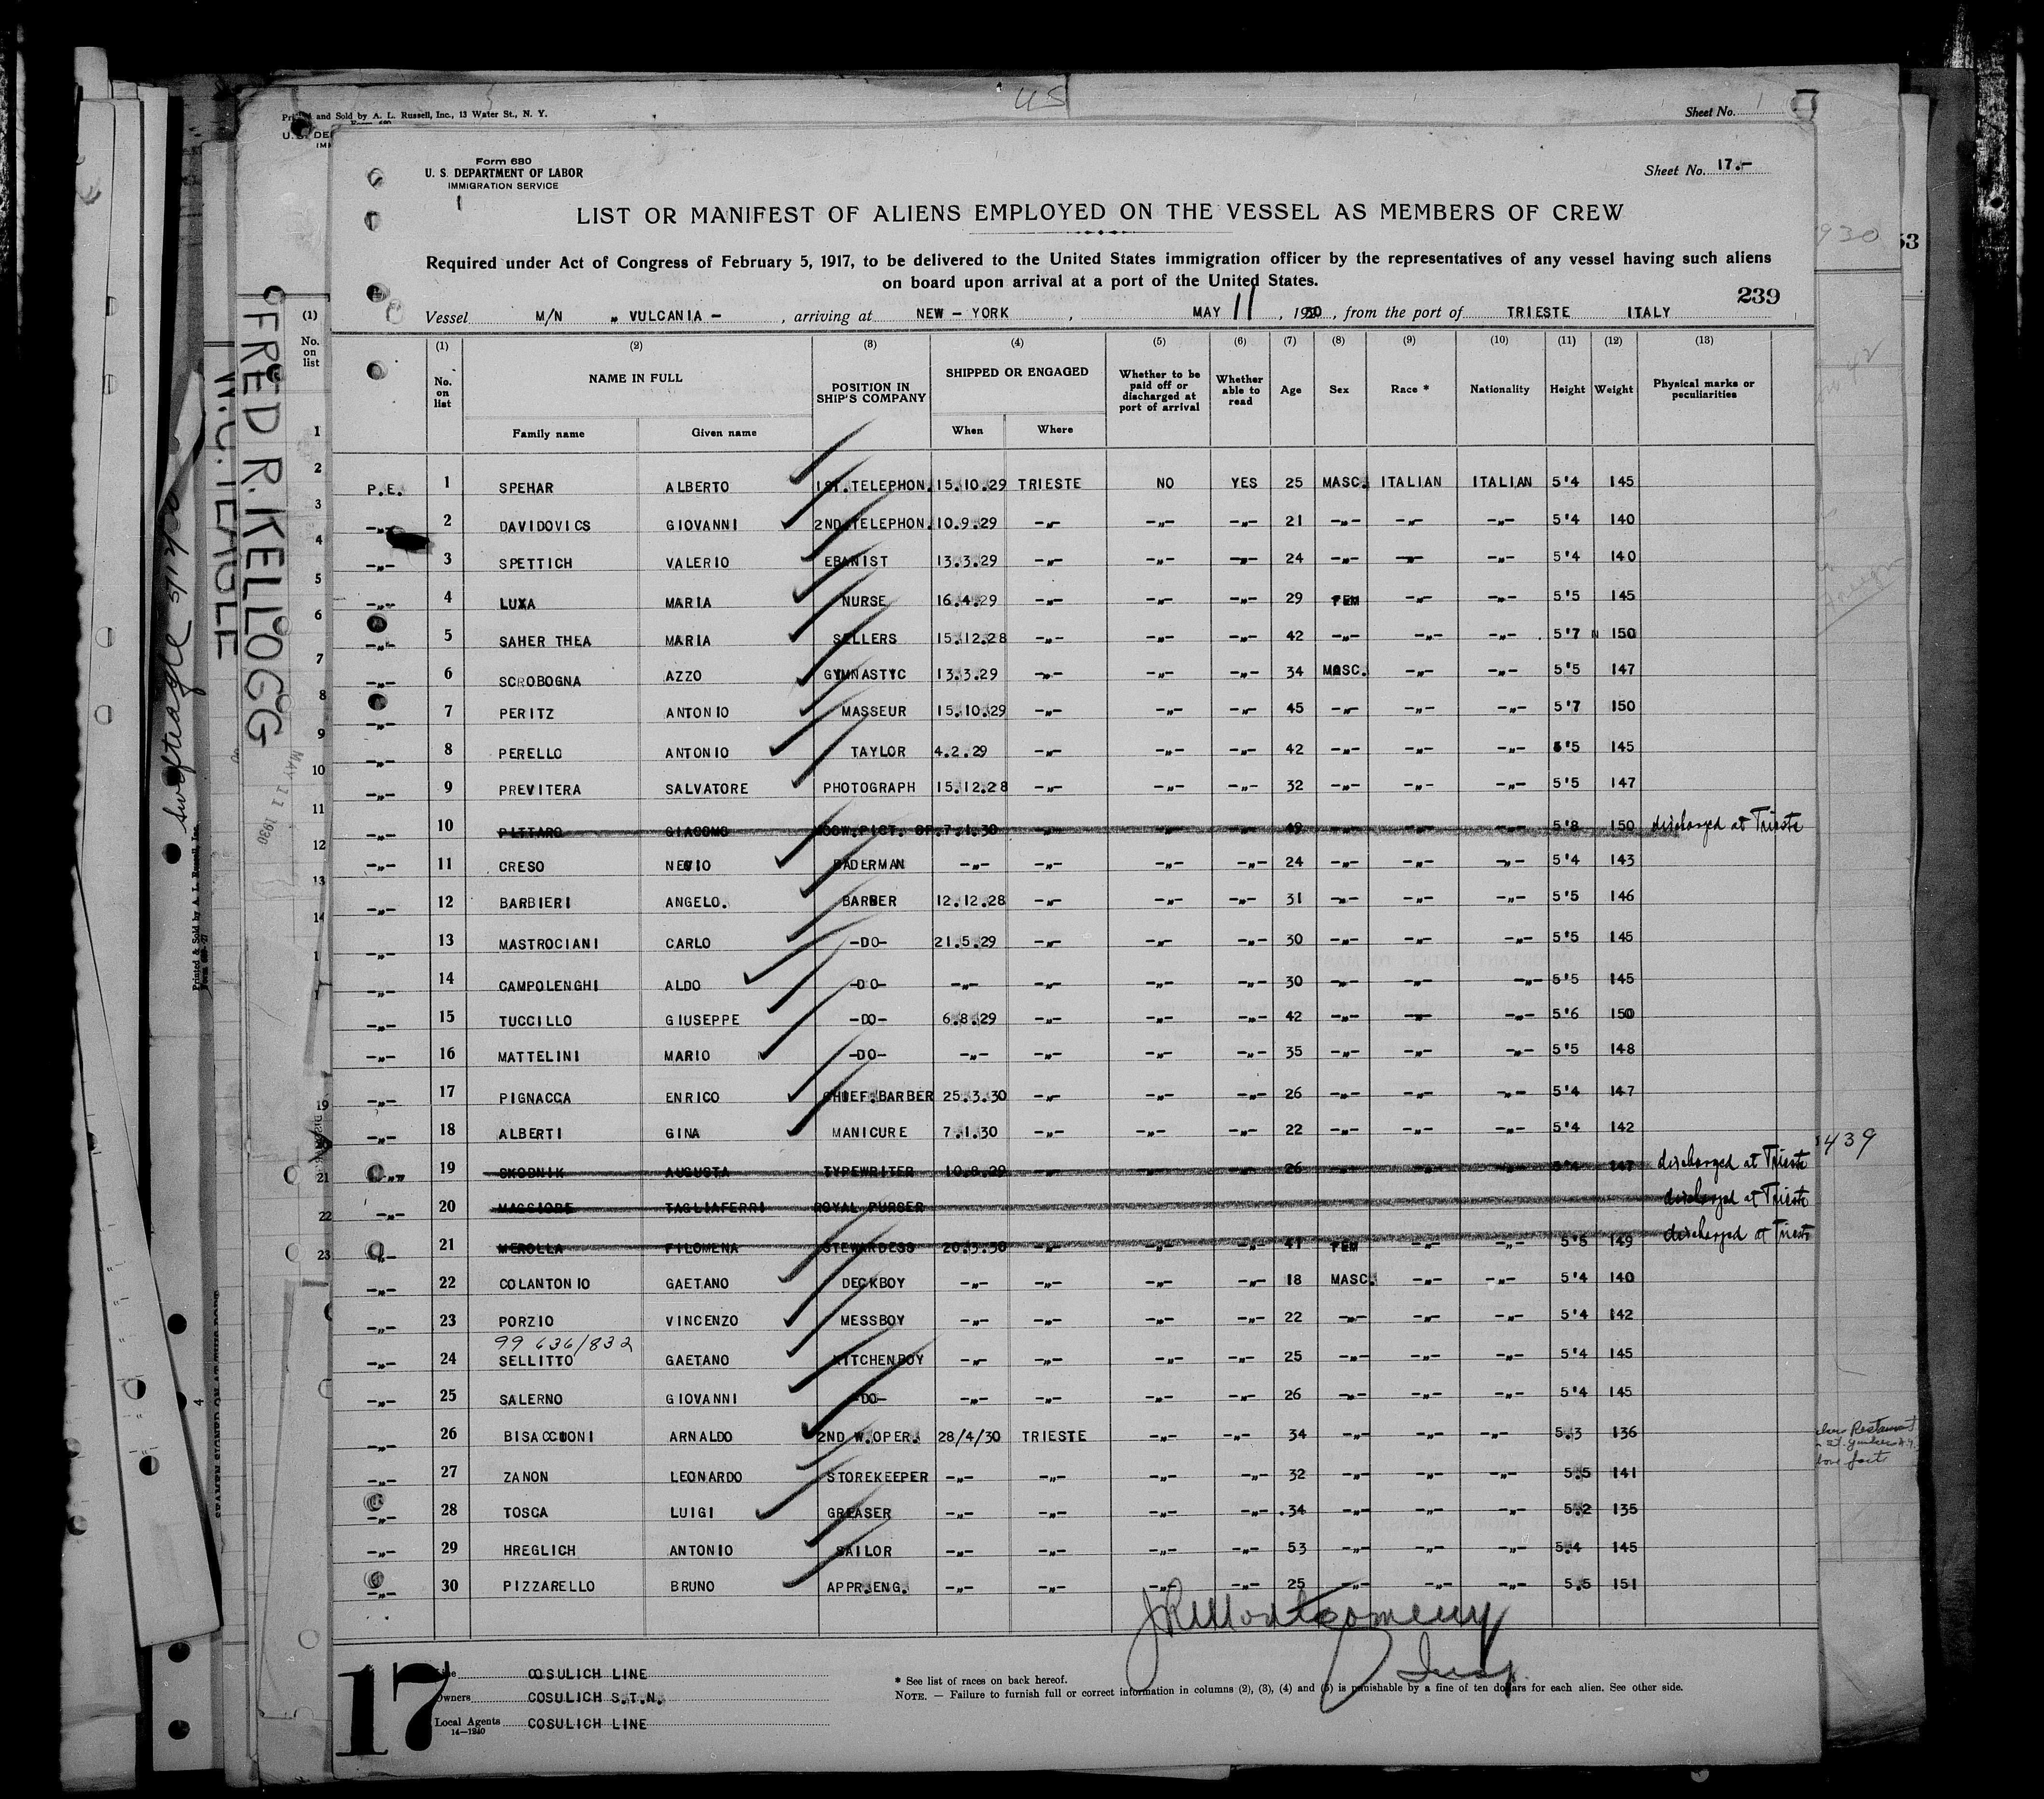 Printed and Sold by A. L. Russell, Inc., 13 Water St., N. Y.
US
Sheet No. 1
Form 680
U. S. DEPARTMENT OF LABOR
IMMIGRATION SERVICE
Sheet No. 17.-
LIST OR MANIFEST OF ALIENS EMPLOYED ON THE VESSEL AS MEMBERS OF CREW
Required under Act of Congress of February 5, 1917, to be delivered to the United States immigration officer by the representatives of any vessel having such aliens
on board upon arrival at a port of the United States.
239
Vessel M/N „ VULCANIA - , arriving at NEW - YORK , MAY 11 , 1930 , from the port of TRIESTE ITALY
(1) (2) (3) (4) (5) (6) (7) (8) (9) (10) (11) (12) (13)
No. on list NAME IN FULL POSITION IN SHIP'S COMPANY SHIPPED OR ENGAGED Whether to be paid off or discharged at port of arrival Whether able to read Age Sex Race * Nationality Height Weight Physical marks or peculiarities
Family name Given name When Where
P.E. 1 SPEHAR ALBERTO 1ST.TELEPHON. 15.10.29 TRIESTE NO YES 25 MASC. ITALIAN ITALIAN 5'4 145
-„- 2 DAVIDOVICS GIOVANNI 2ND.TELEPHON. 10.9.29 -„- -„- -„- 21 -„- -„- -„- 5'4 140
-„- 3 SPETTICH VALERIO EBANIST 13.3.29 -„- -„- -„- 24 -„- -„- -„- 5'4 140
-„- 4 LUXA MARIA NURSE 16.4.29 -„- -„- -„- 29 FEM -„- -„- 5'5 145
-„- 5 SAHER THEA MARIA SELLERS 15.12.28 -„- -„- -„- 42 -„- -„- -„- 5'7 150
-„- 6 SCROBOGNA AZZO GYMNASTYC 13.3.29 -„- -„- -„- 34 MASC. -„- -„- 5'5 147
-„- 7 PERITZ ANTONIO MASSEUR 15.10.29 -„- -„- -„- 45 -„- -„- -„- 5'7 150
-„- 8 PERELLO ANTONIO TAYLOR 4.2.29 -„- -„- -„- 42 -„- -„- -„- 5'5 145
-„- 9 PREVITERA SALVATORE PHOTOGRAPH 15.12.28 -„- -„- -„- 32 -„- -„- -„- 5'5 147
-„- 10 PITTARO GIACOMO PICT. OP. 7.1.30 -„- -„- -„- 49 -„- -„- -„- 5'8 150 discharged at Trieste
-„- 11 CRESO NEVIO BADERMAN -„- -„- -„- -„- 24 -„- -„- -„- 5'4 143
-„- 12 BARBIERI ANGELO. BARBER 12.12.28 -„- -„- -„- 31 -„- -„- -„- 5'5 146
-„- 13 MASTROCIANI CARLO -DO- 21.5.29 -„- -„- -„- 30 -„- -„- -„- 5'5 145
-„- 14 CAMPOLENGHI ALDO -DO- -„- -„- -„- -„- 30 -„- -„- -„- 5'5 145
-„- 15 TUCCILLO GIUSEPPE -DO- 6.8.29 -„- -„- -„- 42 -„- -„- -„- 5'6 150
-„- 16 MATTELINI MARIO -DO- -„- -„- -„- -„- 35 -„- -„- -„- 5'5 148
-„- 17 PIGNACCA ENRICO CHIEF.BARBER 25.3.30 -„- -„- -„- 26 -„- -„- -„- 5'4 147
-„- 18 ALBERTI GINA MANICURE 7.1.30 -„- -„- -„- 22 -„- -„- -„- 5'4 142
-„- 19 SKODNIK AUGUSTA TYPEWRITER 10.8.29 -„- -„- -„- 26 -„- -„- -„- 5'4 147 discharged at Trieste
-„- 20 MAGGIORE TAGLIAFERRI ROYAL PURSER discharged at Trieste
-„- 21 MEROLLA FILOMENA STEWARDESS 20.3.30 -„- -„- -„- 41 FEM -„- -„- 5'5 149 discharged at Trieste
-„- 22 COLANTONIO GAETANO DECKBOY -„- -„- -„- -„- 18 MASC. -„- -„- 5'4 140
-„- 23 PORZIO VINCENZO MESSBOY -„- -„- -„- -„- 22 -„- -„- -„- 5'4 142
99 636/832
-„- 24 SELLITTO GAETANO KITCHENBOY -„- -„- -„- -„- 25 -„- -„- -„- 5'4 145
-„- 25 SALERNO GIOVANNI -DO- -„- -„- -„- -„- 26 -„- -„- -„- 5'4 145
-„- 26 BISACCIONI ARNALDO 2ND W.OPER. 28/4/30 TRIESTE -„- -„- 34 -„- -„- -„- 5.3 136
-„- 27 ZANON LEONARDO STOREKEEPER -„- -„- -„- -„- 32 -„- -„- -„- 5.5 141
-„- 28 TOSCA LUIGI GREASER -„- -„- -„- -„- 34 -„- -„- -„- 5.2 135
-„- 29 HREGLICH ANTONIO SAILOR -„- -„- -„- -„- 53 -„- -„- -„- 5.4 145
-„- 30 PIZZARELLO BRUNO APPR.ENG. -„- -„- -„- -„- 25 -„- -„- -„- 5.5 151
JR Montgomery
Insp.
17
Line COSULICH LINE
Owners COSULICH S.T.N.
Local Agents COSULICH LINE
14—1240
* See list of races on back hereof.
NOTE. — Failure to furnish full or correct information in columns (2), (3), (4) and (5) is punishable by a fine of ten dollars for each alien. See other side.
FRED R. KELLOGG
W.C. TEAGLE
Swifteagle 5/12/30
MAY 11 1930
Printed & Sold by A. L. Russell, Inc.
(1)
No. on list
930
53
439
Restaurant